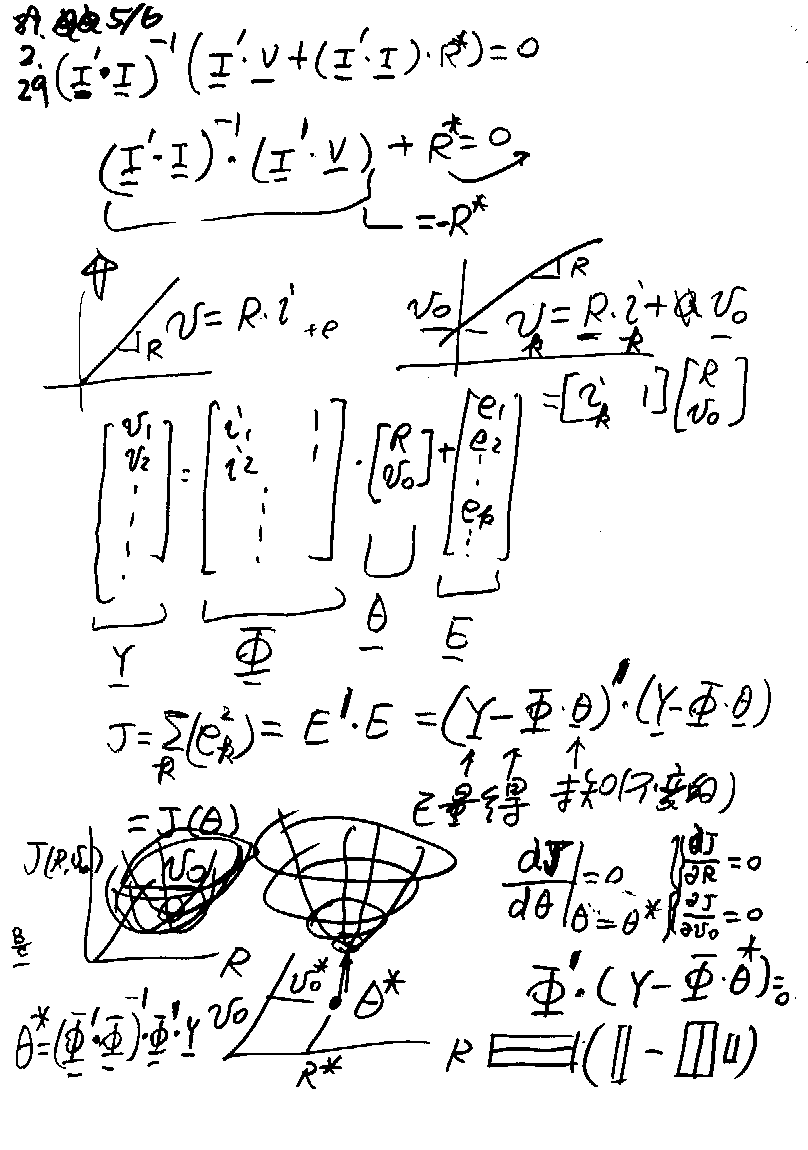 5/6
2.
29 (I'·I)⁻¹(I'·V+(I'·I)·R*)=0
(I'·I)⁻¹·(I'·V)+R*=0
=-R*
v=R·i+e
R
v₀
R
vₖ=R·iₖ+v₀
=[iₖ 1][R v₀]
[v₁ v₂ ⋮]=[i₁ 1 i₂ 1 ⋮]·[R v₀]+[e₁ e₂ ⋮ eₖ ⋮]
Y Φ θ E
J=Σₖ(eₖ²)=E'·E=(Y-Φ·θ)'·(Y-Φ·θ)
↑ ↑ ↑
已量得 未知(不變的)
=J(θ)
J(R,v₀)
v₀
R
dJ/dθ|θ=θ*=0
{∂J/∂R=0 ∂J/∂v₀=0
Φ'·(Y-Φ·θ*)=0
v₀
v₀*
θ*
R*
R
θ*=(Φ'·Φ)⁻¹·Φ'·Y